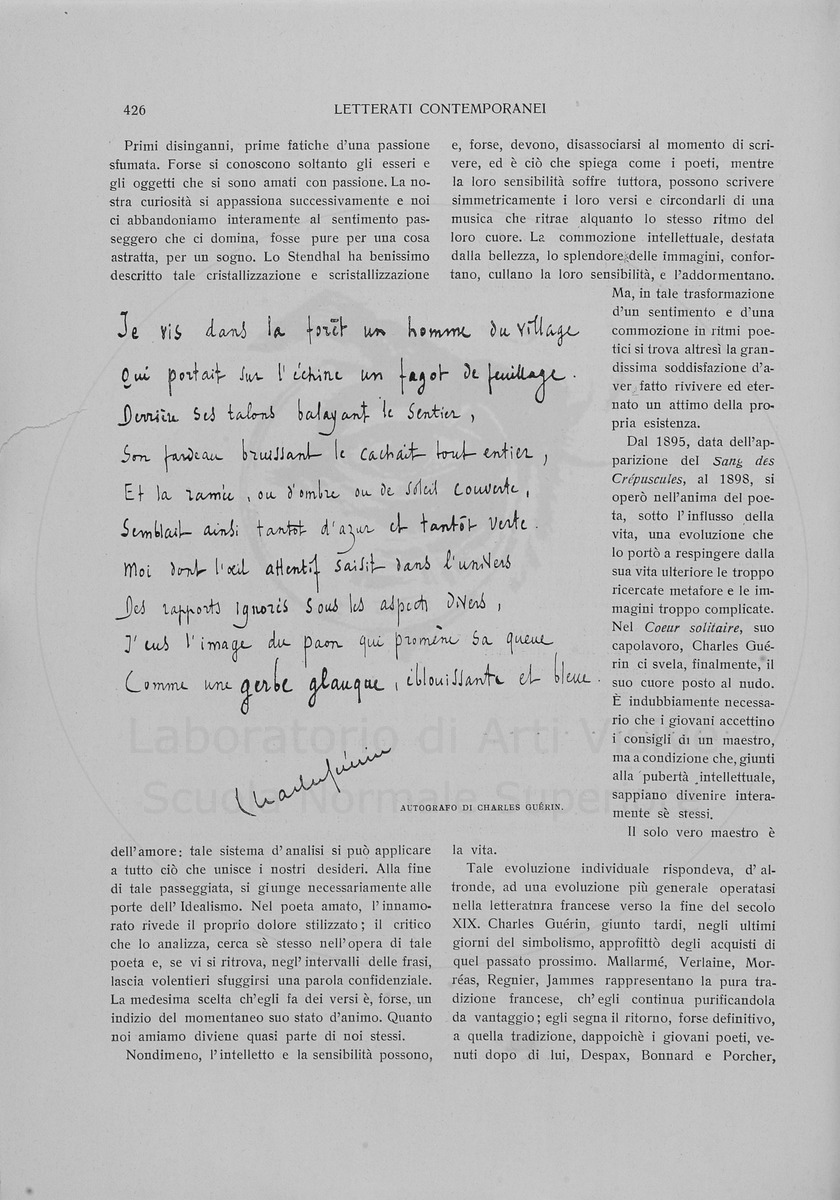 426
LETTERATI CONTEMPORANEI
Primi disinganni, prime fatiche d'una passione
sfumata. Forse si conoscono soltanto gli esseri e
gli oggetti che si sono amati con passione. La no-
stra curiosità si appassiona successivamente e noi
ci abbandoniamo interamente al sentimento pas-
seggero che ci domina, fosse pure per una cosa
astratta, per un sogno. Lo Stendhal ha benissimo
descritto tale cristallizzazione e scristallizzazione
Je vis dans la forêt un homme du village
Qui portait sur l'échine un fagot de feuillage.
Derrière ses talons balayant le sentier,
Son fardeau bruissant le cachait tout entier,
Et la ramée, ou d'ombre ou de soleil couverte,
Semblait ainsi tantôt d'azur et tantôt verte.
Moi dont l'œil attentif saisit dans l'univers
Des rapports ignorés sous les aspects divers,
J'eus l'image du paon qui promène sa queue
Comme une gerbe glauque, éblouissante et bleue.
Charles Guérin
AUTOGRAFO DI CHARLES GUÉRIN.
dell'amore: tale sistema d'analisi si può applicare
a tutto ciò che unisce i nostri desideri. Alla fine
di tale passeggiata, si giunge necessariamente alle
porte dell'Idealismo. Nel poeta amato, l'innamo-
rato rivede il proprio dolore stilizzato; il critico
che lo analizza, cerca sè stesso nell'opera di tale
poeta e, se vi si ritrova, negl'intervalli delle frasi,
lascia volentieri sfuggirsi una parola confidenziale.
La medesima scelta ch'egli fa dei versi è, forse, un
indizio del momentaneo suo stato d'animo. Quanto
noi amiamo diviene quasi parte di noi stessi.
Nondimeno, l'intelletto e la sensibilità possono,
e, forse, devono, disassociarsi al momento di scri-
vere, ed è ciò che spiega come i poeti, mentre
la loro sensibilità soffre tuttora, possono scrivere
simmetricamente i loro versi e circondarli di una
musica che ritrae alquanto lo stesso ritmo del
loro cuore. La commozione intellettuale, destata
dalla bellezza, lo splendore delle immagini, confor-
tano, cullano la loro sensibilità, e l'addormentano.
Ma, in tale trasformazione
d'un sentimento e d'una
commozione in ritmi poe-
tici si trova altresì la gran-
dissima soddisfazione d'a-
ver fatto rivivere ed eter-
nato un attimo della pro-
pria esistenza.
Dal 1895, data dell'ap-
parizione del Sang des
Crépuscules, al 1898, si
operò nell'anima del poe-
ta, sotto l'influsso della
vita, una evoluzione che
lo portò a respingere dalla
sua vita ulteriore le troppo
ricercate metafore e le im-
magini troppo complicate.
Nel Coeur solitaire, suo
capolavoro, Charles Gué-
rin ci svela, finalmente, il
suo cuore posto al nudo.
È indubbiamente necessa-
rio che i giovani accettino
i consigli di un maestro,
ma a condizione che, giunti
alla pubertà intellettuale,
sappiano divenire intera-
mente sè stessi.
Il solo vero maestro è
la vita.
Tale evoluzione individuale rispondeva, d'al-
tronde, ad una evoluzione più generale operatasi
nella letteratnra francese verso la fine del secolo
XIX. Charles Guérin, giunto tardi, negli ultimi
giorni del simbolismo, approfittò degli acquisti di
quel passato prossimo. Mallarmé, Verlaine, Mor-
réas, Regnier, Jammes rappresentano la pura tra-
dizione francese, ch'egli continua purificandola
da vantaggio; egli segna il ritorno, forse definitivo,
a quella tradizione, dappoichè i giovani poeti, ve-
nuti dopo di lui, Despax, Bonnard e Porcher,
Laboratorio di Arti Visive
Scuola Normale Superiore